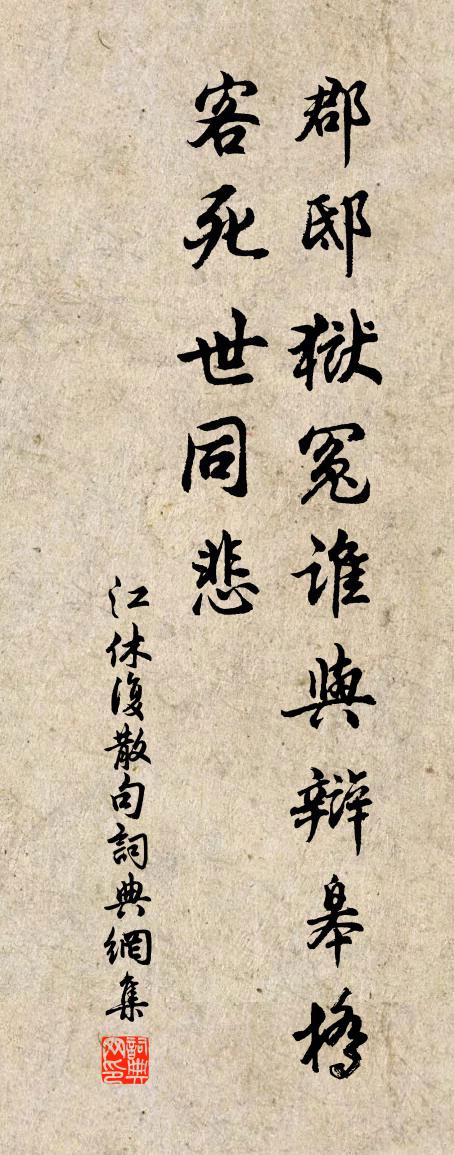 郡邸獄冤誰與辯皋橋
客死世同悲
江休復散句詞典網集
詞典网印